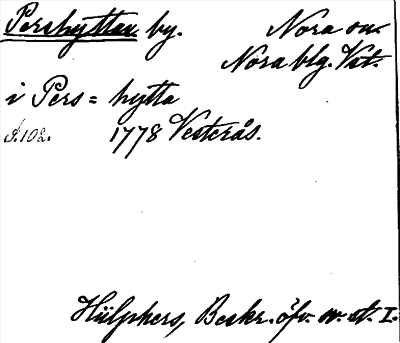 Pershyttan by. Nora sn.
Nora blg. Vst.
i Pers = hytta
s. 102. 1778 Vesterås.
Hülphers, Beskr. öfv. w. st. I.